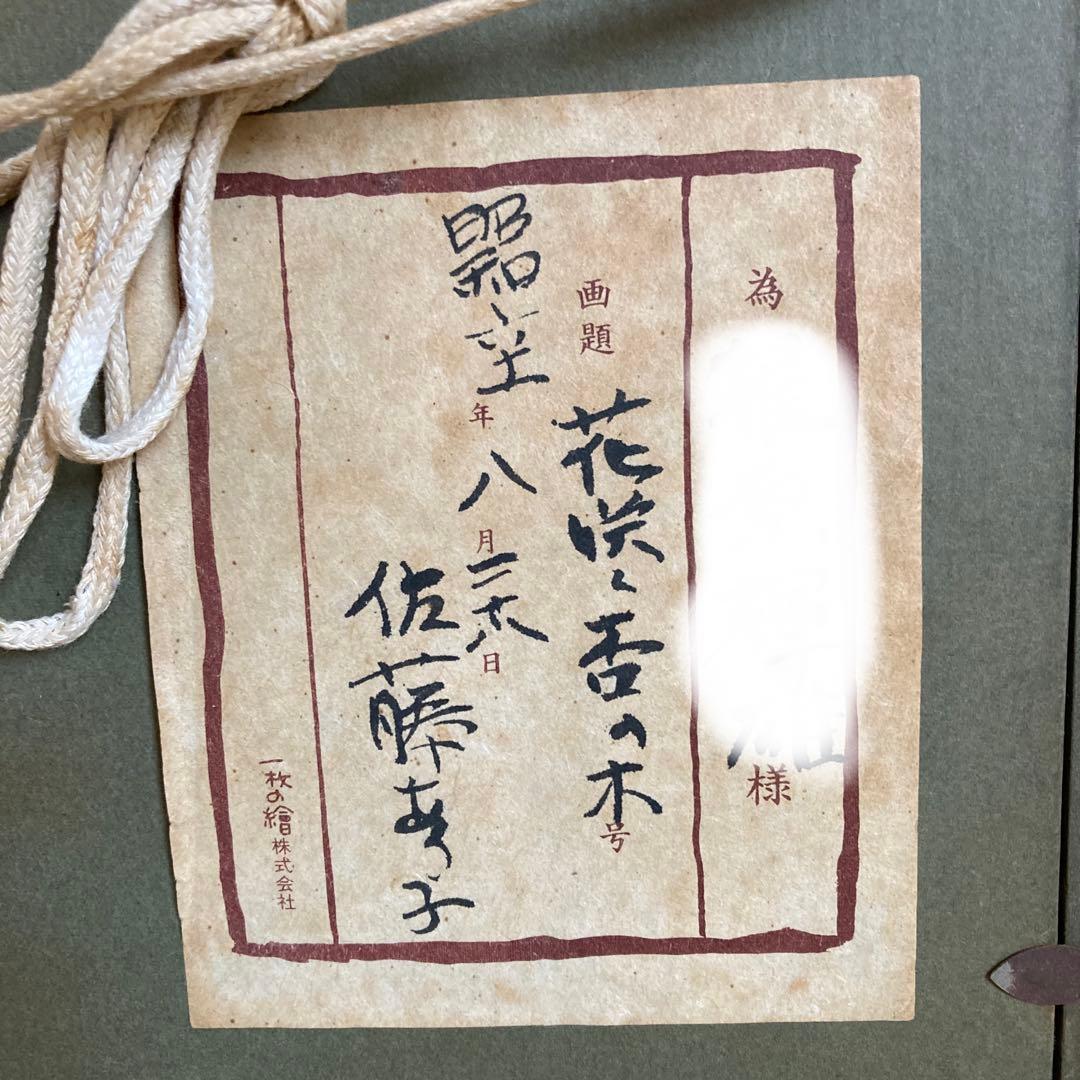 為
様
画題 花咲く杏の木 号
昭和 年 八月 日
佐藤 子
一枚の繪株式会社